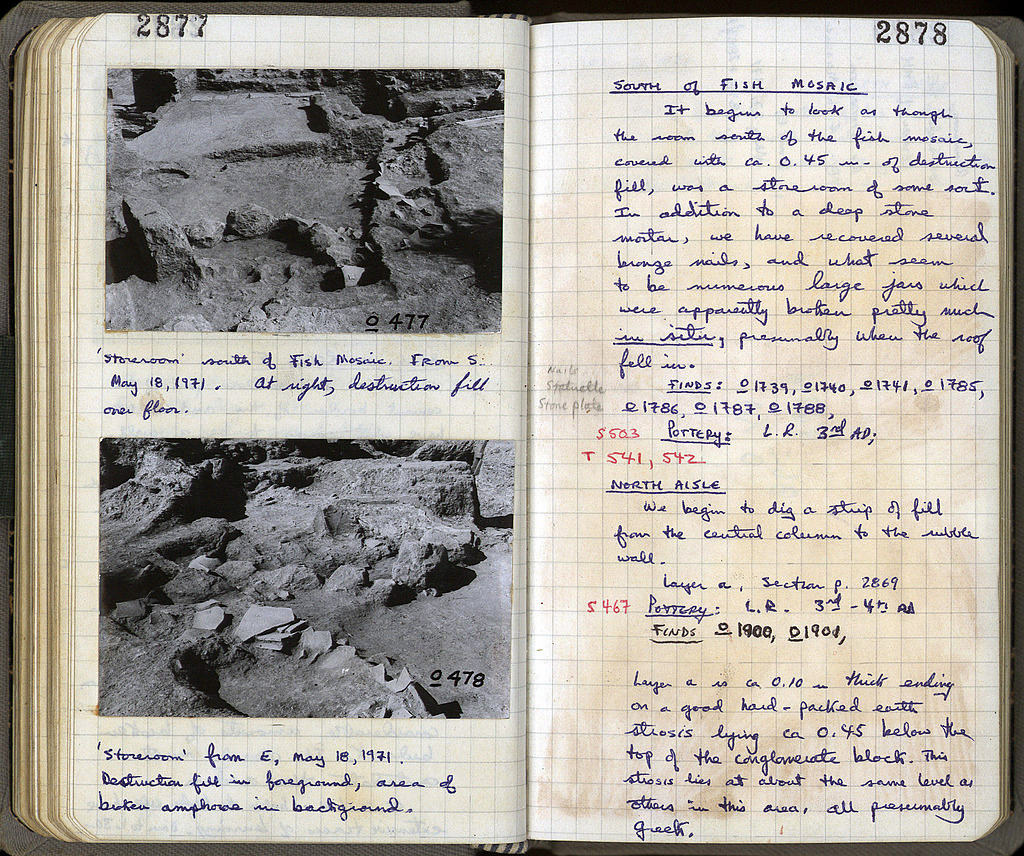 2877
O 477
'Storeroom' south of Fish Mosaic. From S.
May 18, 1971. At right, destruction fill
over floor.
O 478
'Storeroom' from E, May 18, 1971.
Destruction fill in foreground, area of
broken amphorae in background.
2878
South of Fish Mosaic
It begins to look as though
the room south of the fish mosaic,
covered with ca. 0.45 m. of destruction
fill, was a storeroom of some sort.
In addition to a deep stone
mortar, we have recovered several
bronze nails, and what seem
to be numerous large jars which
were apparently broken pretty much
in situ, presumably when the roof
fell in.
Nails
Statuette
Stone plate
Finds: O 1739, O 1740, O 1741, O 1785,
O 1786, O 1787, O 1788,
S 503 Pottery: L.R. 3rd AD;
T 541, 542
North Aisle
We begin to dig a strip of fill
from the central column to the rubble
wall.
Layer a, Section p. 2869
S 467 Pottery: L.R. 3rd - 4th AD
Finds O 1900, O 1901,
Layer a is ca 0.10 m thick ending
on a good hard-packed earth
strosis lying ca 0.45 below the
top of the conglomerate block. This
strosis lies at about the same level as
others in this area, all presumably
Greek.